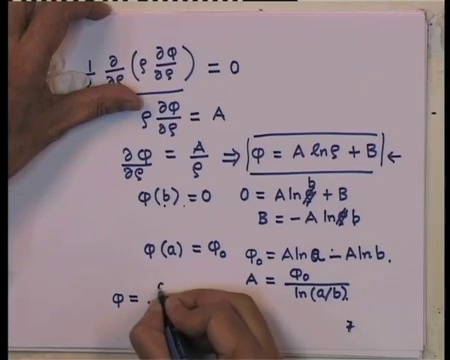 1/ρ ∂/∂ρ (ρ ∂φ/∂ρ) = 0
ρ ∂φ/∂ρ = A
∂φ/∂ρ = A/ρ ⇒ φ = A ln ρ + B ←
φ(b) = 0   0 = A ln b + B
B = - A ln b
φ(a) = φ₀   φ₀ = A ln a - A ln b.
A = φ₀/ln(a/b).
φ =
7